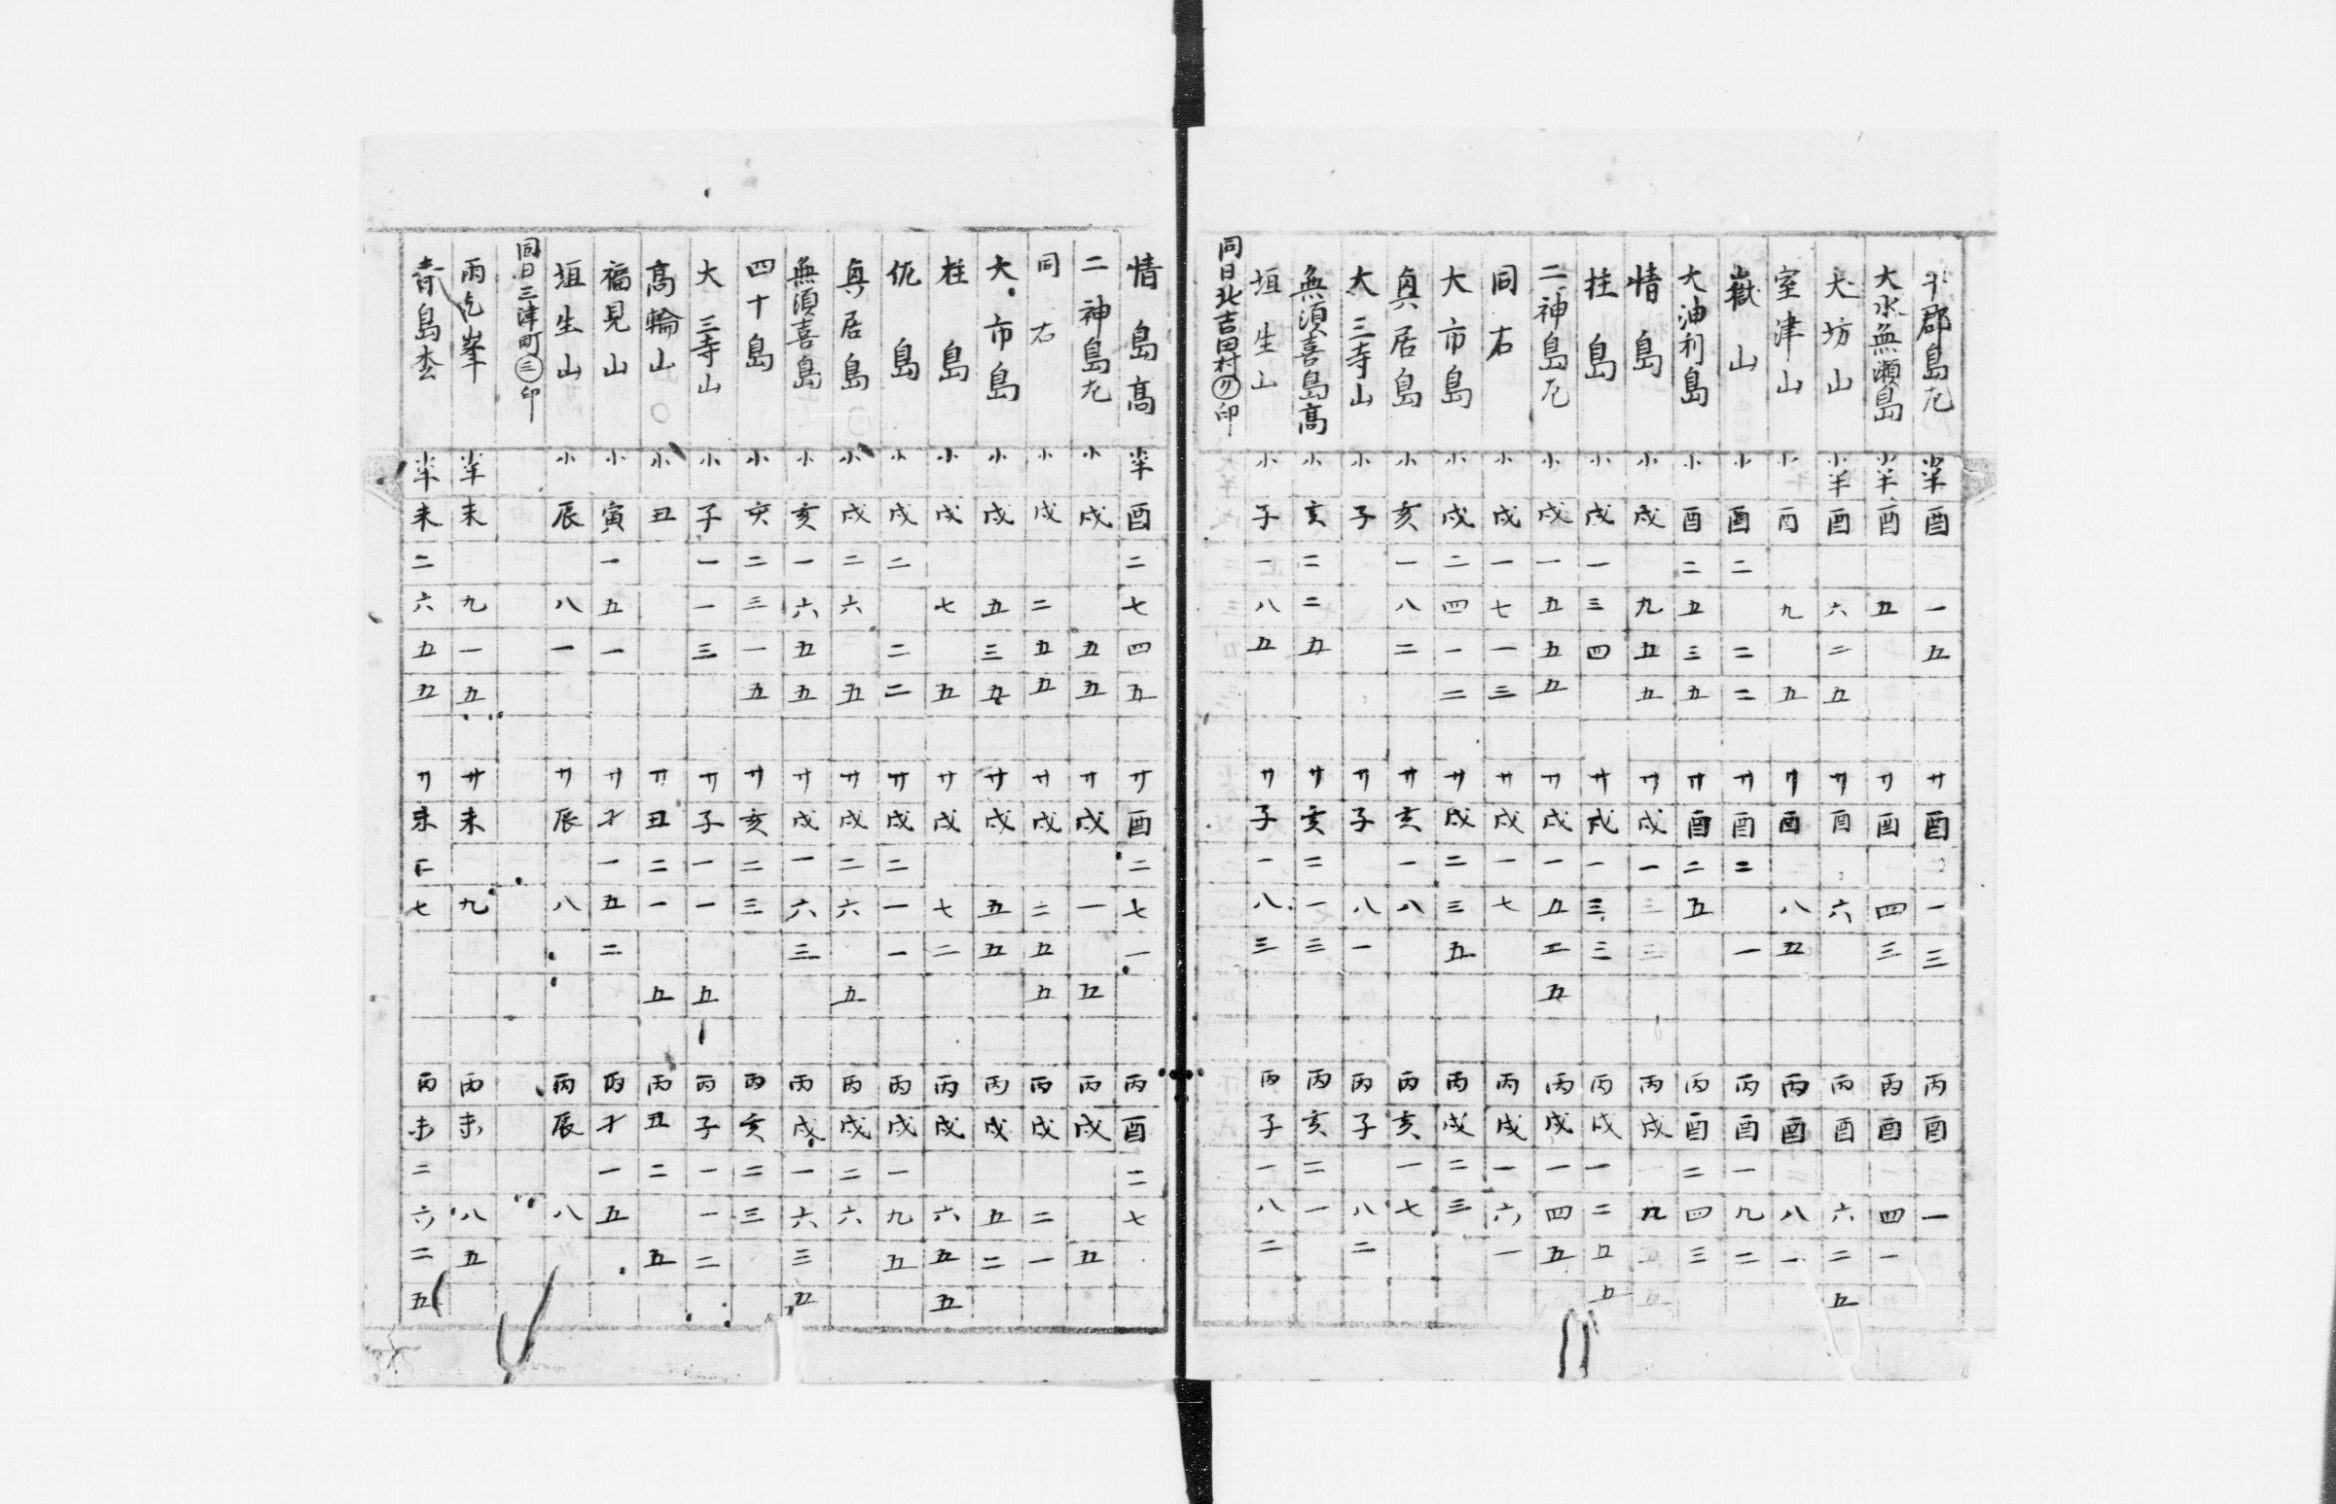 平郡島左 小半酉一五 廿酉一三 丙酉一
大水無瀬島 小半酉五 廿酉四三 丙酉四一
犬坊山 小半酉六二五 廿酉六 丙酉六二五
室津山 小酉九五 廿酉八五 丙酉八一
嶽山 小酉二二二 廿酉二一 丙酉一九二
大油利島 小酉二五三五 廿酉二五 丙酉二四三
情島 小戌九五五 廿戌一三三 丙戌九五五
柱島 小戌一三四 廿戌一三三 丙戌一二五五
二神島左 小戌一五五五 廿戌一五五五 丙戌一四五
同右 小戌一七一三 廿戌一七 丙戌一六一
大市島 小戌二四一二 廿戌二三五 丙戌二三
奥居島 小亥一八二 廿亥一八 丙亥一七
大三寺山 小子 廿子八一 丙子八二
無須喜島高 小亥二二五 廿亥二一三 丙亥二一
垣生山 小子一八五 廿子一八三 丙子一八二
同日北吉田村㋺印
情島高 小半酉二七四五 廿酉二七一 丙酉二七
二神島左 小戌五五 廿戌一五 丙戌五
同右 小戌二五五 廿戌二五五 丙戌二一
大市島 小戌五三五 廿戌五五 丙戌五二
柱島 小戌七五 廿戌七二 丙戌六五五
伬島 小戌二二二 廿戌二一一 丙戌一九五
奥居島 小戌二六五 廿戌二六五 丙戌二六
無須喜島 小亥一六五五 廿戌一六三 丙戌一六三五
四十島 小亥二三一五 廿亥二三 丙亥二三
大三寺山 小子一一三 廿子一一五 丙子一一二
高輪山 小丑 廿丑二一五 丙丑二五
福見山 小寅一五一 廿寸一五二 丙寸一五
垣生山 小辰八一 廿辰八 丙辰八
同日三津町㊂印
雨乞峯 小半未九一五 廿未九 丙未八五
青島杢 小半未二六五五 廿未二七 丙未二六二五